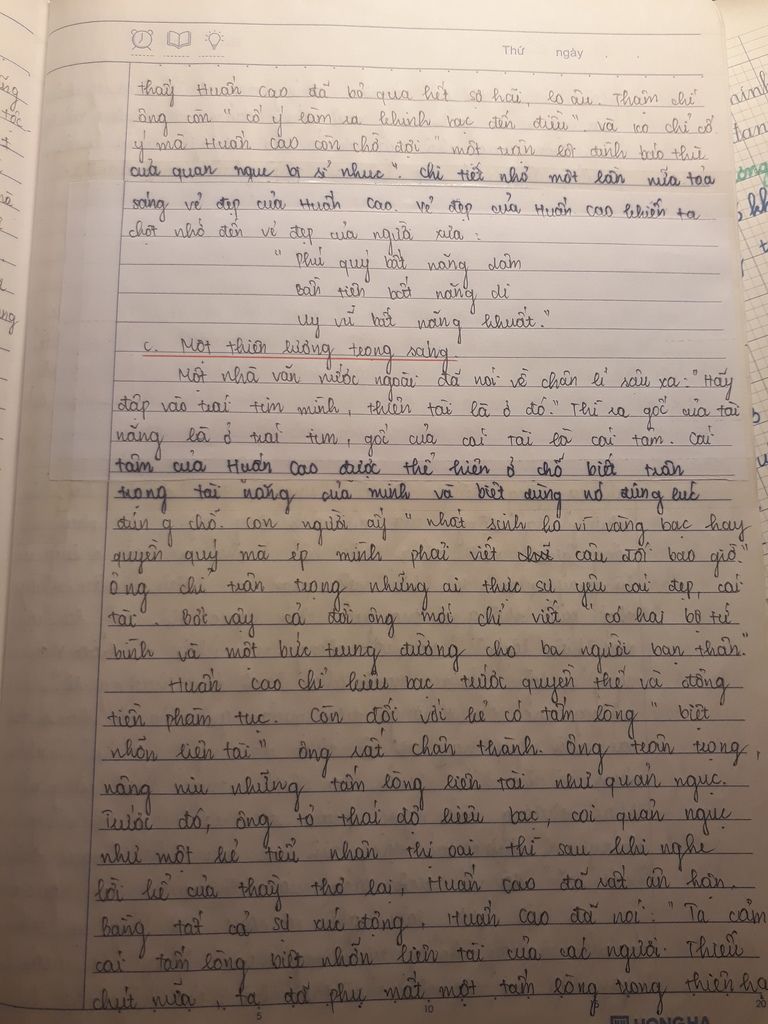 Thứ ngày
thấy Huấn Cao đã bỏ qua hết sợ hãi, lo âu. Thậm chí
ông còn "cố ý làm ra khinh bạc đến điều". Và ko chỉ cố
ý mà Huấn Cao còn chờ đợi "một trận lôi đình báo thù
của quan ngục bị sỉ nhục". Chi tiết nhỏ một lần nữa tỏa
sáng vẻ đẹp của Huấn Cao. Vẻ đẹp của Huấn Cao khiến ta
chợt nhớ đến vẻ đẹp của người xưa:
"Phú quý bất năng dâm
Bần tiện bất năng di
Uy vũ bất năng khuất."
c. Một thiên lương trong sáng.
Một nhà văn nước ngoài đã nói về chân lí sâu xa: "Hãy
đập vào trái tim mình, thiên tài là ở đó." Thì ra gốc của tài
năng là ở trái tim, gốc của cái tài là cái tâm. Cái
tâm của Huấn Cao được thể hiện ở chỗ biết trân
trọng tài năng của mình và biết dùng nó đúng lúc
đúng chỗ. Con người ấy "nhất sinh ko vì vàng bạc hay
quyền quý mà ép mình phải viết câu đối bao giờ."
Ông chỉ trân trọng những ai thực sự yêu cái đẹp, cái
tài. Bởi vậy cả đời ông mới chỉ viết "có hai bộ tứ
bình và một bức trung đường cho ba người bạn thân."
Huấn Cao chỉ kiêu bạc trước quyền thế và đồng
tiền phàm tục. Còn đối với kẻ có tấm lòng "biệt
nhỡn liên tài" ông rất chân thành. Ông trân trọng,
nâng niu những tấm lòng liên tài như quản ngục.
Trước đó, ông tỏ thái độ kiêu bạc, coi quản ngục
như một kẻ tiểu nhân thị oai thì sau khi nghe
lời kể của thầy thơ lại, Huấn Cao đã rất ân hận.
Bằng tất cả sự xúc động, Huấn Cao đã nói: "Ta cảm
cái tấm lòng biệt nhỡn liên tài của các người. Thiếu
chút nữa, ta đã phụ mất một tấm lòng trong thiên hạ
5 10 20
HONGHA